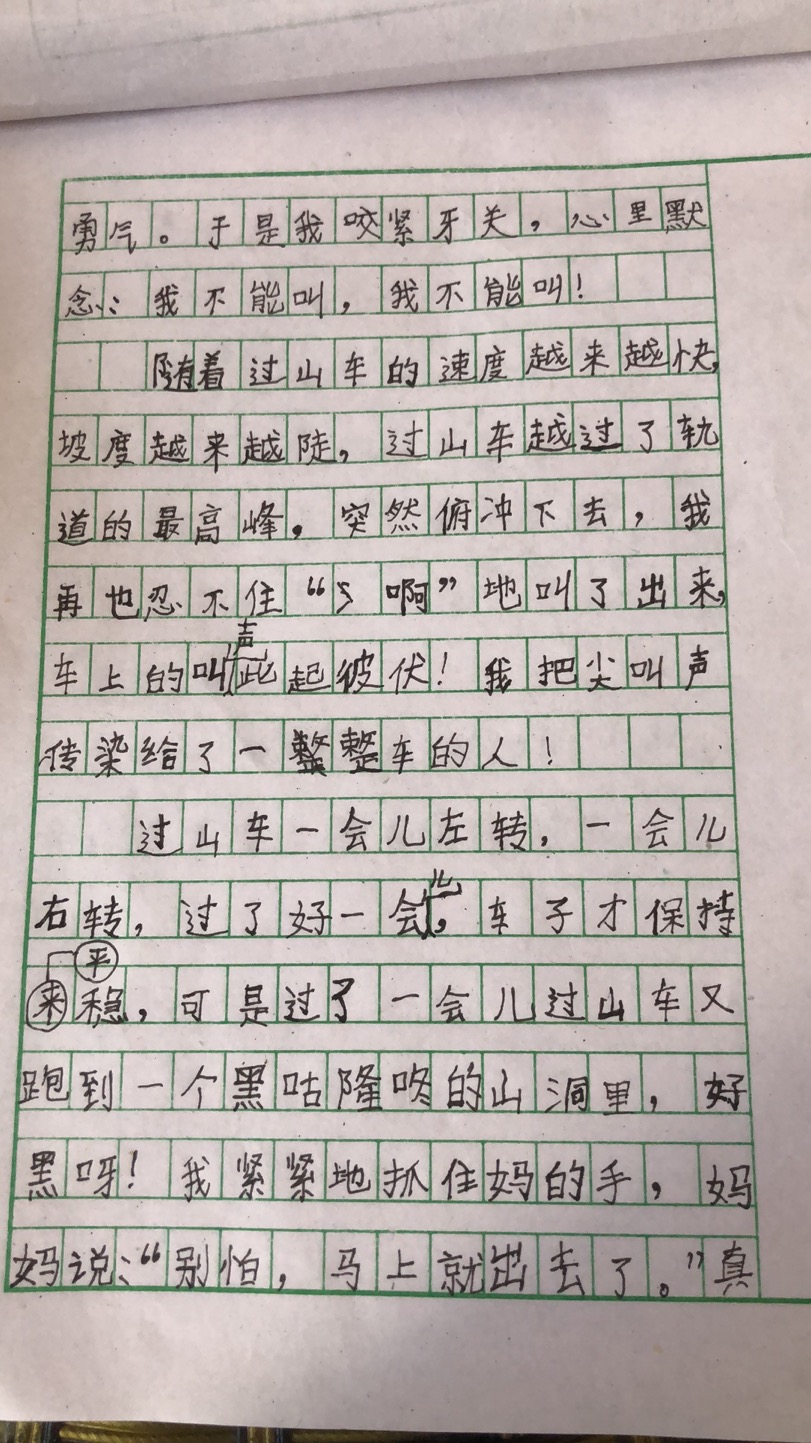 勇气。于是我咬紧牙关，心里默
念：我不能叫，我不能叫！
随着过山车的速度越来越快，
坡度越来越陡，过山车越过了轨
道的最高峰，突然俯冲下去，我
再也忍不住“啊”地叫了出来，
车上的叫声此起彼伏！我把尖叫声
传染给了一整整车的人！
过山车一会儿左转，一会儿
右转，过了好一会儿，车子才保持
平
来稳，可是过了一会儿过山车又
跑到一个黑咕隆咚的山洞里，好
黑呀！我紧紧地抓住妈的手，妈
妈说：“别怕，马上就出去了。”真